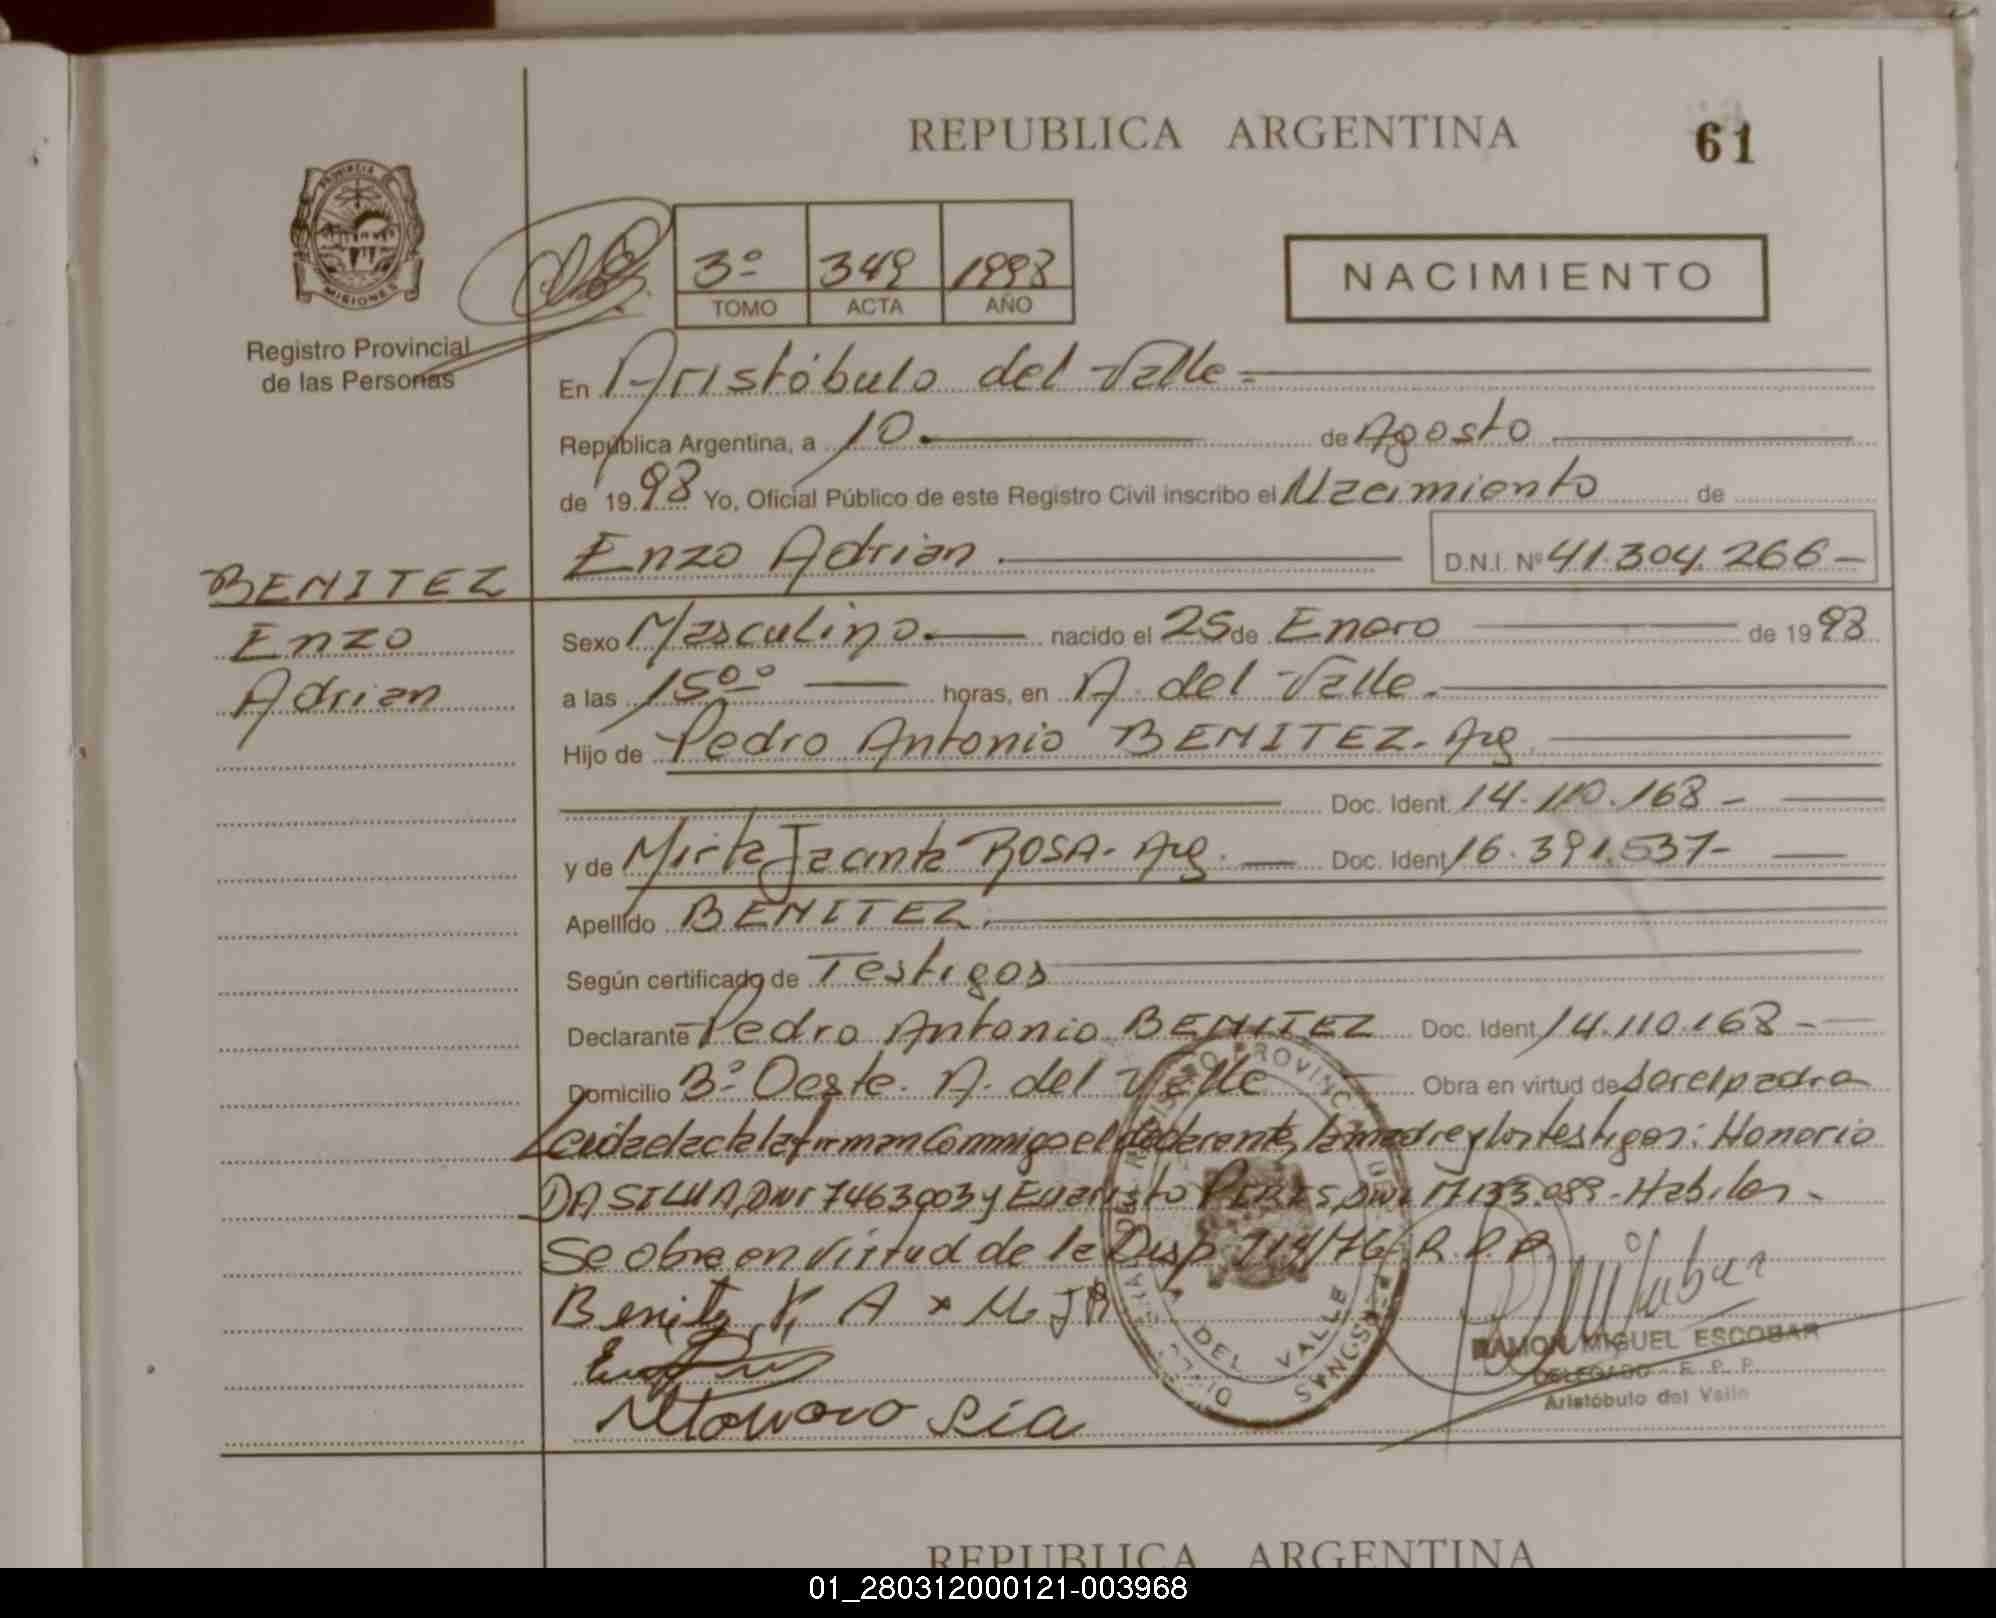 REPUBLICA ARGENTINA
61
PROVINCIA
MISIONES
Registro Provincial
de las Personas
3º 349 1998
TOMO ACTA AÑO
NACIMIENTO
En Aristóbulo del Valle.
República Argentina, a 10 de Agosto
de 1998 Yo, Oficial Público de este Registro Civil inscribo el Nacimiento de
Enzo Adrian D.N.I. Nº 41.304.266-
BENITEZ
Enzo
Adrian
Sexo Masculino. nacido el 25 de Enero de 1998
a las 15ºº horas, en A. del Valle.
Hijo de Pedro Antonio BENITEZ. Arg
Doc. Ident. 14.110.168-
y de Mirta Jacinta ROSA- Arg. Doc. Ident. 16.391.537-
Apellido BENITEZ.
Según certificado de Testigos
Declarante Pedro Antonio BENITEZ Doc. Ident. 14.110.168-
Domicilio Bº Oeste. A. del Valle Obra en virtud de ser el padre
Leída el acta la firman conmigo el declarante, la madre y los testigos: Honorio
DA SILVA, DNI 7463003 y Evaristo PERES, DNI 17133.089-Habiles.
Se obra en virtud de la Disp. 714/76 R.P.P.
Benitez P. A x M J R
DEL VALLE
RAMON MIGUEL ESCOBAR
DELEGADO R. P. P.
Aristóbulo del Valle
REPUBLICA ARGENTINA
01_280312000121-003968